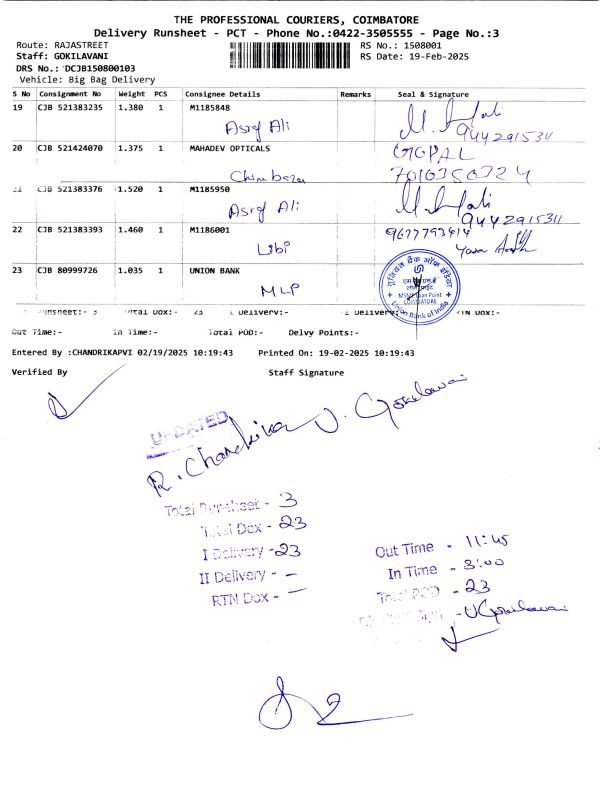 THE PROFESSIONAL COURIERS, COIMBATORE
Delivery Runsheet - PCT - Phone No.:0422-3505555 - Page No.:3
Route: RAJASTREET RS No.: 1508001
Staff: GOKILAVANI RS Date: 19-Feb-2025
DRS No.: DCJB150800103
Vehicle: Big Bag Delivery
S No Consignment No Weight PCS Consignee Details Remarks Seal & Signature
19 CJB 521383235 1.380 1 M1185848
Asrf Ali 944291531
20 CJB 521424070 1.375 1 MAHADEV OPTICALS GOPAL
21 CJB 521383376 1.520 1 M1185950
Asrf Ali 944291531
22 CJB 521383393 1.460 1 M1186001 9677793414
Libi
23 CJB 80999726 1.035 1 UNION BANK
MLP
यूनियन बैंक ऑफ इंडिया
MSME Loan Point
COIMBATORE
Union Bank of India
Runsheet:- 3 Total Dox:- 23 I Delivery:- II Delivery:- RTN Dox:-
Out Time:- In Time:- Total POD:- Delvy Points:-
Entered By :CHANDRIKAPVI 02/19/2025 10:19:43 Printed On: 19-02-2025 10:19:43
Verified By Staff Signature
UPDATED
R. Chandrika J. Gokilavani
Total Runsheet - 3
Total Dox - 23
I Delivery - 23
II Delivery - –
RTN Dox - –
Out Time - 11:45
In Time - 3:00
Total POD - 23